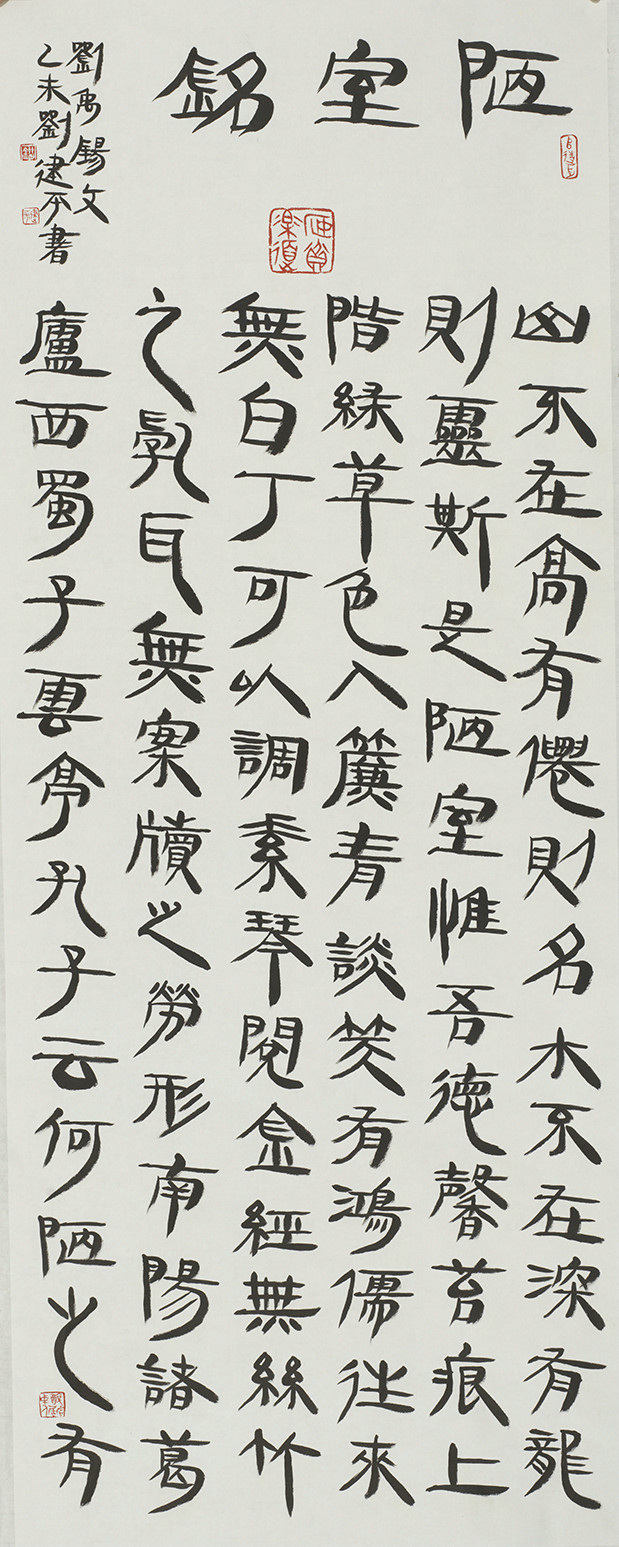 陋室銘
山不在高有僊則名水不在深有龍
則靈斯是陋室惟吾德馨苔痕上
階緑草色入簾青談笑有鴻儒往來
無白丁可以調素琴閱金經無絲竹
之亂耳無案牘之勞形南陽諸葛
廬西蜀子雲亭孔子云何陋之有
劉禹錫文
乙未劉建平書